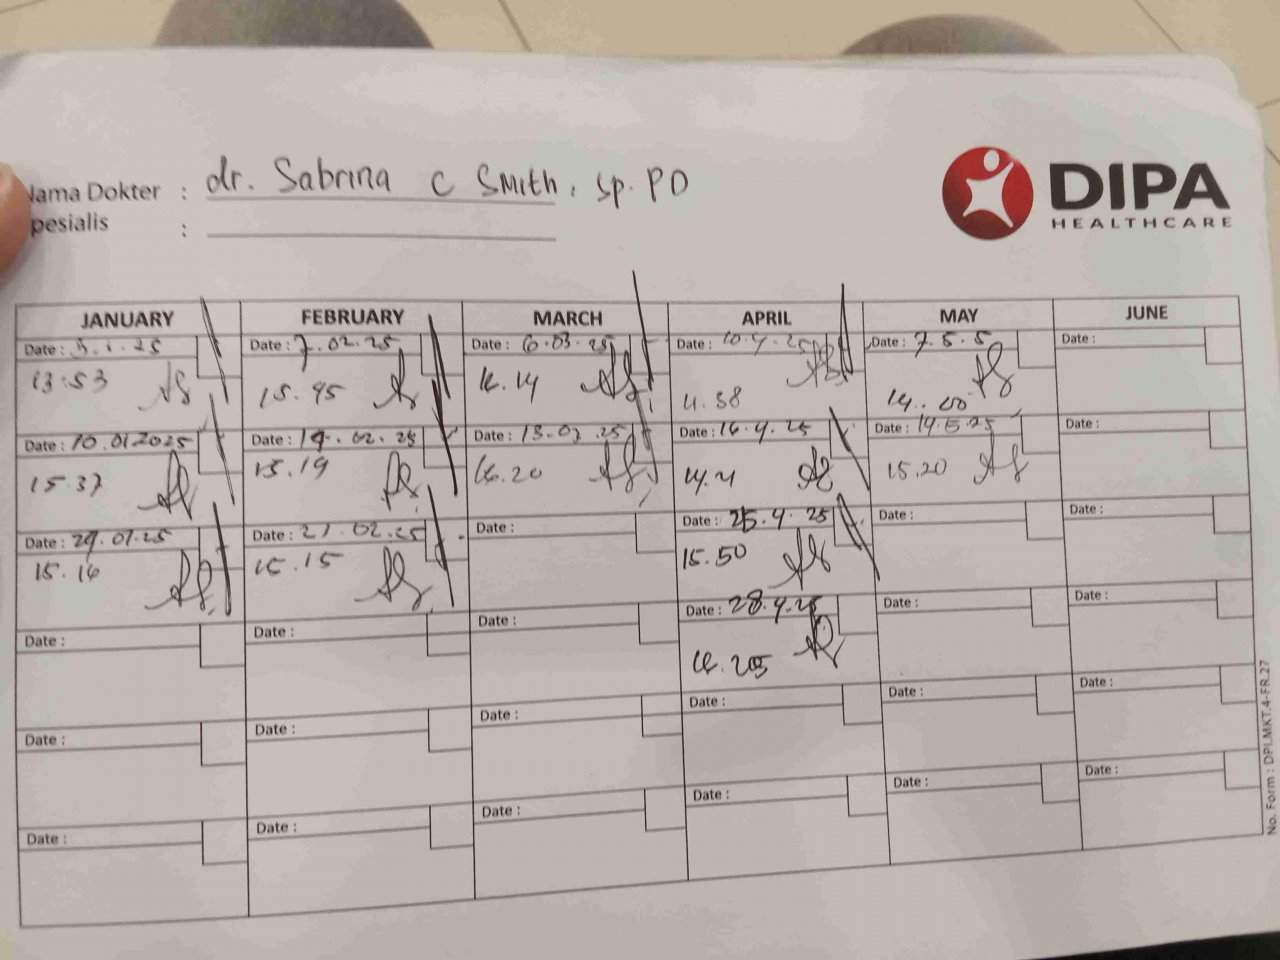 Nama Dokter : dr. Sabrina C Smith, Sp. PD
pesialis :
DIPA
HEALTHCARE
JANUARY FEBRUARY MARCH APRIL MAY JUNE
Date : 3.1.25 Date : 7.02.25 Date : 6.03.25 Date : 10.4.25 Date : 7.5.5 Date :
13:53 15.45 14.14 11.38 14.00
Date : 10.01.2025 Date : 14.02.25 Date : 13.03.25 Date : 16.4.25 Date : 14.5.25 Date :
15.37 15.19 16.20 14.21 15.20
Date : 29.01.25 Date : 21.02.25 Date : Date : 25.4.25 Date : Date :
15.16 15.15 15.50
Date : Date : Date : Date : 28.4.25 Date : Date :
Date : Date : Date : Date : Date : Date :
Date : Date : Date : Date : Date : Date :
No. Form : DPI.MKT.4-FR.27